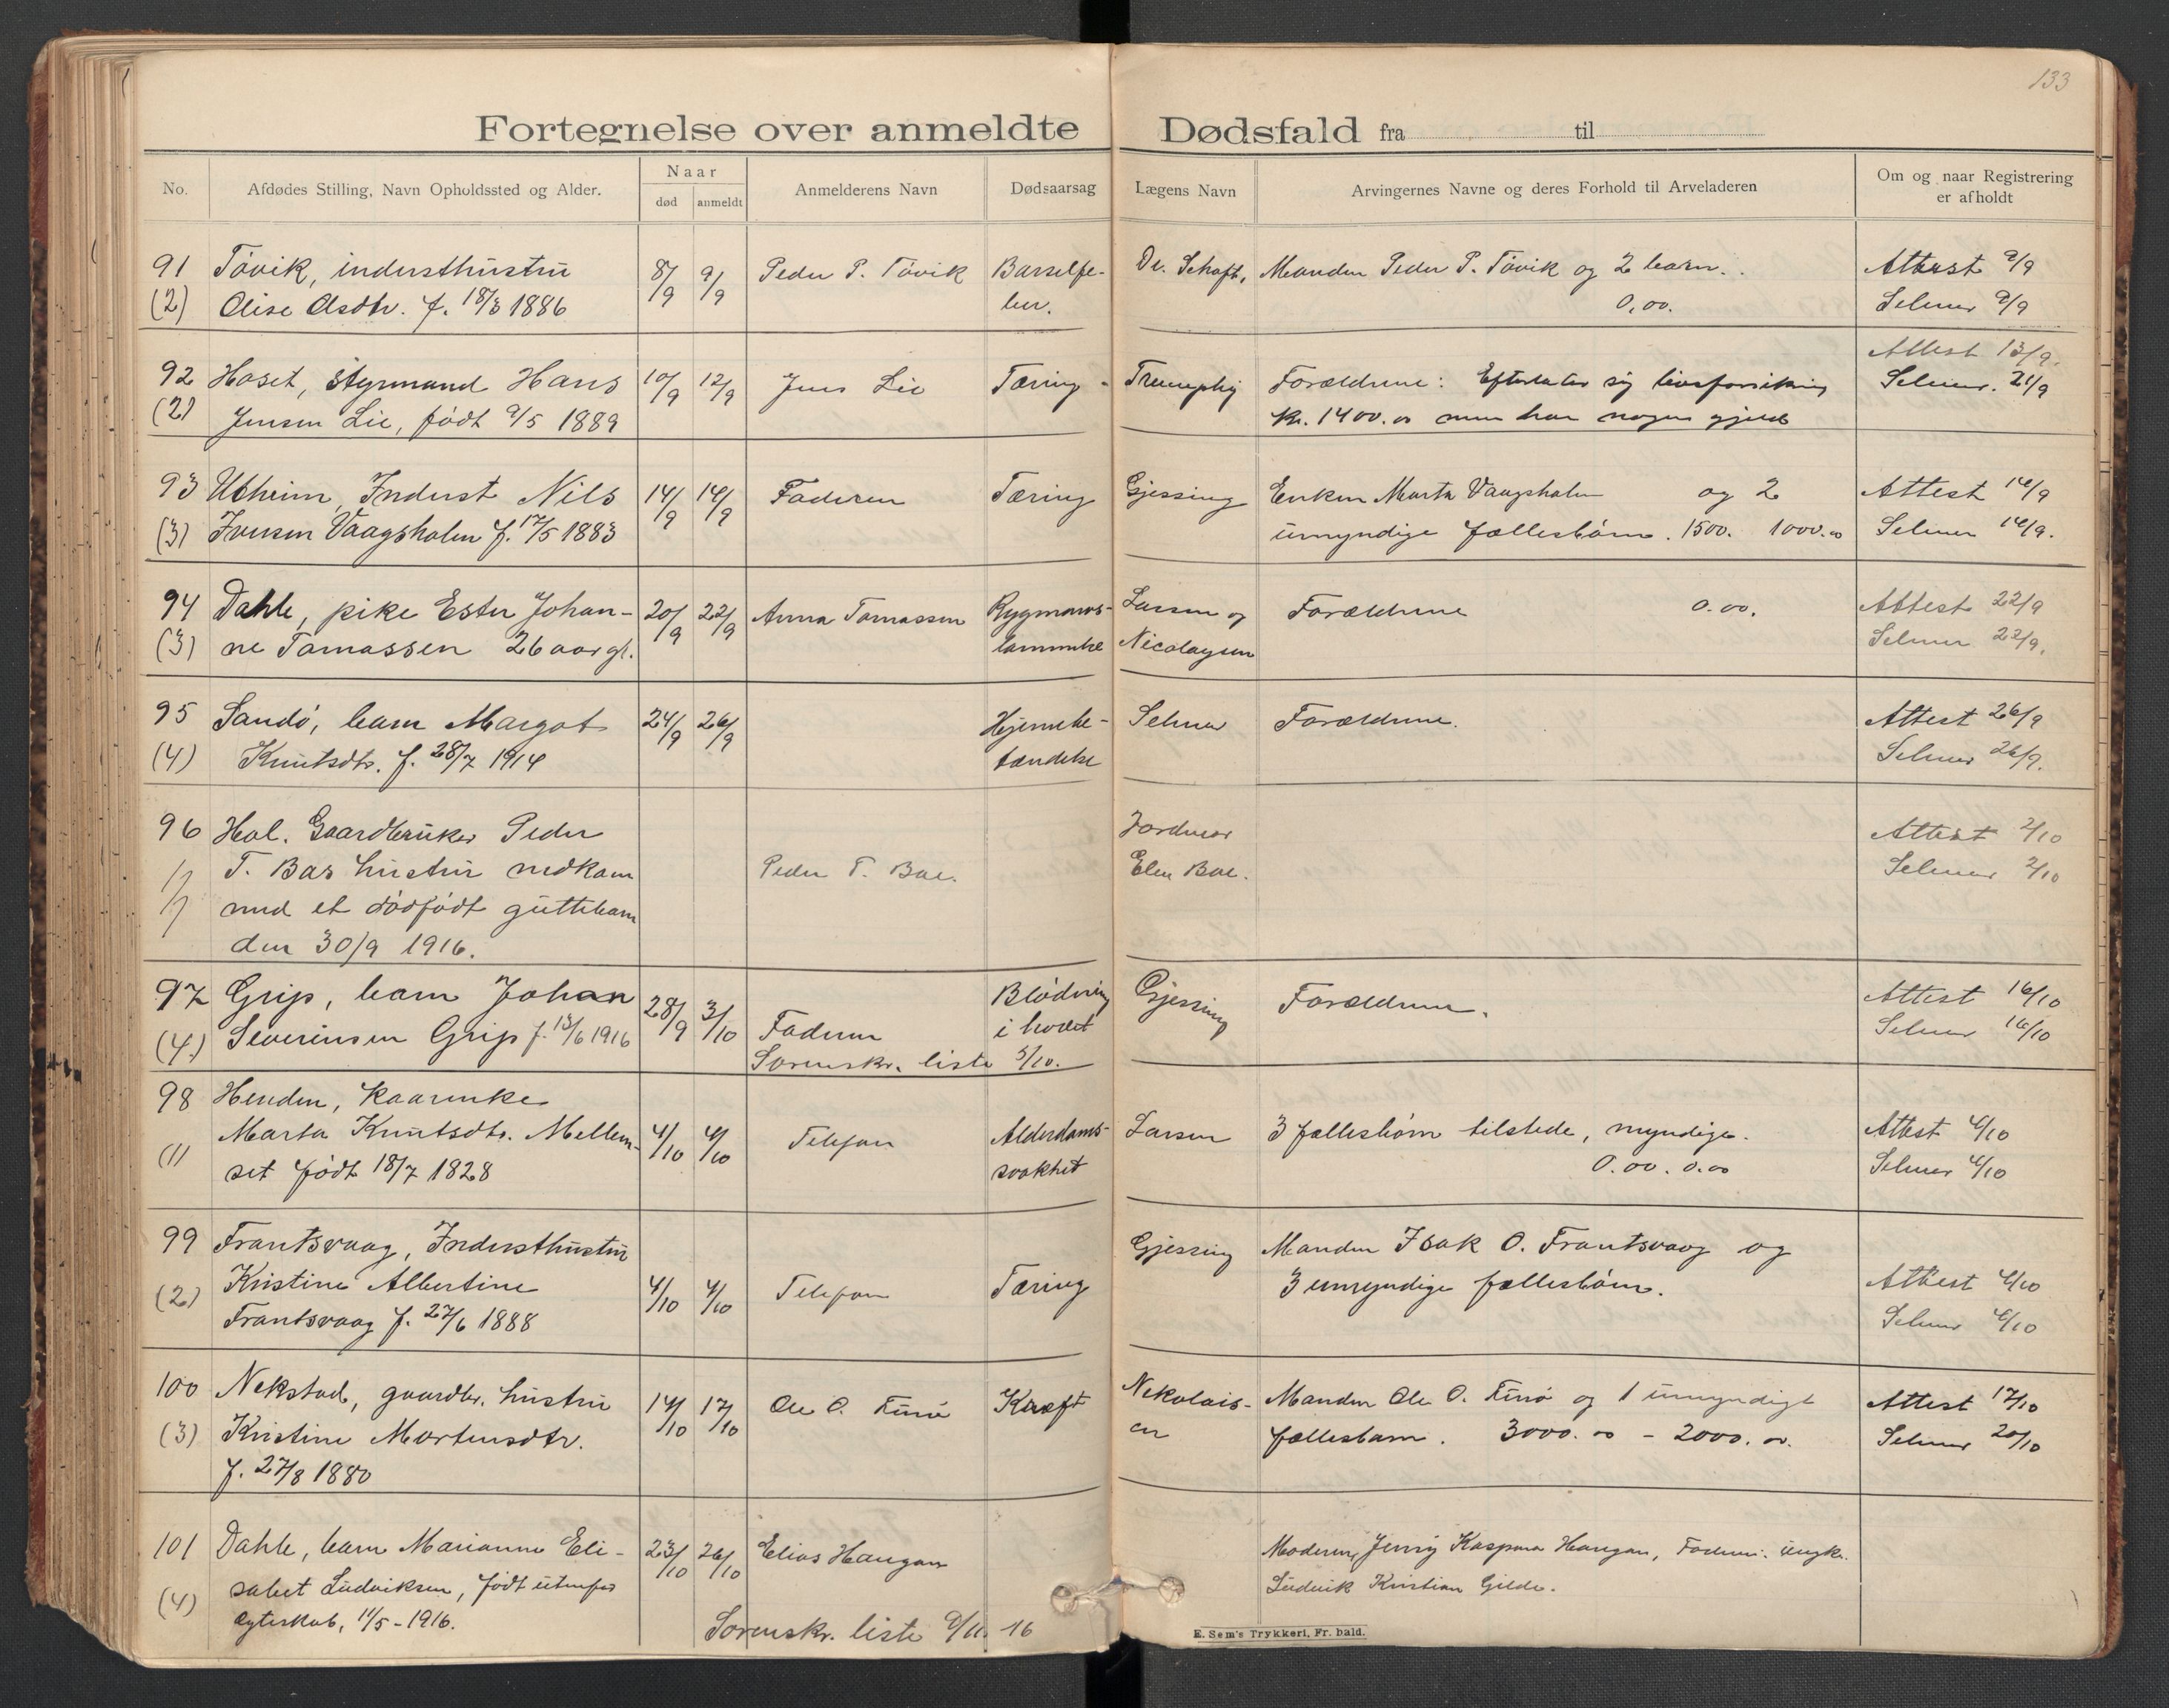 133
Fortegnelse over anmeldte Dødsfald fra til
No.
Afdødes Stilling, Navn Opholdssted og Alder.
Naar
død
anmeldt
Anmelderens Navn
Dødsaarsag
Lægens Navn
Arvingernes Navne og deres Forhold til Arveladeren
Om og naar Registrering
er afholdt
91 Tövik, inderst hustru 8/9 9/9 Peder P. Tövik Barselfe- Dr. Schøft, Manden Peder P. Tövik og 2 barn. Attest 9/9
(2) Olise Olsdtr. f. 18/3 1886 ber. 0,00. Selmer 9/9
92 Hoset, styrmand Hans 10/9 12/9 Jens Lie Tæring Forældrene: Efterlater sig livsforsikring Attest 13/9.
(2) Jensen Lie, født 9/5 1889 Kr. 1400.00 men har nogen gjeld Selmer. 21/9
93 Utheim, Inderst Nils 14/9 14/9 Faderen Tæring Gjessing Enken Marta Vaagsholm og 2 Attest 14/9
(3) Iversen Vaagsholm f. 17/5 1883 umyndige fællesbörn. 1500. 1000.00 Selmer 14/9.
94 Dahle, pike Ester Johan- 20/9 22/9 Anna Tomassen Rygmarvs- Larsen og Forældrene 0.00. Attest 22/9
(3) ne Tomassen 26 aar gl. lammelse Nicolaysen Selmer 22/9.
95 Sandö, barn Margot 24/9 26/9 Hjernebe- Selmer Forældrene. Attest 26/9
(4) Knutsdtr. f. 28/7 1914 tændelse Selmer 26/9.
96 Hol. Gaardbruker Peder Jordmor Attest 2/10
T. Bøs hustru nedkom Peder T. Boe. Elen Boe. Selmer 2/10
med et dödfödt guttebarn
den 30/9 1916.
97 Grip, barn Johan 28/9 3/10 Blödning Gjessing Forældrene. Attest 16/10
(4.) Severinsen Grip f. 13/6 1916 Faderen i hodet Selmer 16/10
Sorenskr. liste 5/10.
98 Henden, kaarenke
Marta Knutsdtr. Mellem- 4/10 4/10 Telefon Alderdoms- Larsen 3 fællesbörn tilstede, myndige. Attest 4/10
(1) set født 18/7 1828 svakhet 0.00. 0.00 Selmer 4/10
99 Frantsvaag, Indersthustru Gjessing Manden Isak O. Frantsvaag og
(2) Kristine Albertine 4/10 4/10 Telefon Tæring 3 umyndige fællesbörn. Attest 4/10
Frantsvaag f. 27/6 1888 Selmer 4/10
100 Nekstad, gaardbr. hustru 14/10 17/10 Ole O. Kræft Nikolais- Manden Ole O. og 1 umyndigt Attest 17/10
(3) Kristine Mortensdtr. en fællesbarn. 3000.00 - 2000.00. Selmer 20/10
f. 27/8 1880
101 Dahle, barn Marianne Eli- 23/10 26/10 Elias Haugan Moderen, Jenny Haugan, Faderen: ungk.
(4) sabet Ludviksen, født utenfor Ludvik Kristian Gilde.
egteskab, 11/5 - 1916. Sorenskr. liste 9/11 16
E. Sem's Trykkeri, Fr. hald.